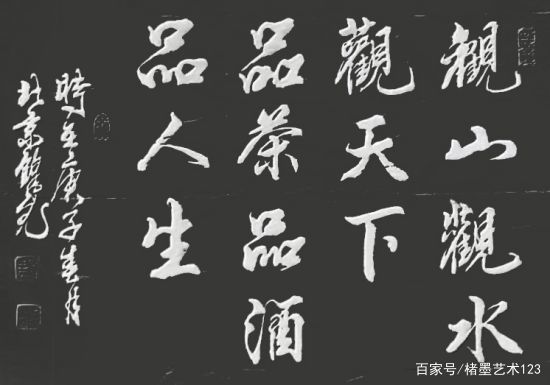 観山觀水
觀天下
品茶品酒
品人生
時在庚子春月
北京
百家号/楮墨艺术123